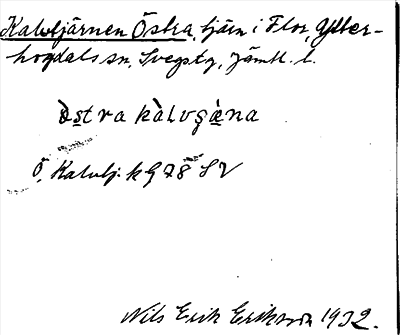 Kalvtjärnen Östra, tjärn i Flor, Ytter-
hogdals sn, Svegs tg, Jämtl. l.
östra kàlvgæ̀na
Ö. Kalvtj. k G 78 SV
Nils Erik Eriksson 1932.